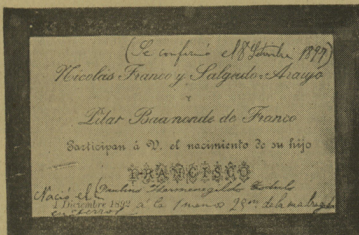 (Se confirmó el 18 Setiembre 1899)
Nicolás Franco y Salgado-Araujo
Y
Pilar Baamonde de Franco
Participan á V. el nacimiento de su hijo
FRANCISCO
Nació el (Paulino Hermenegildo Teodulo
4 Diciembre 1892 á la 1 menos de la madrugada